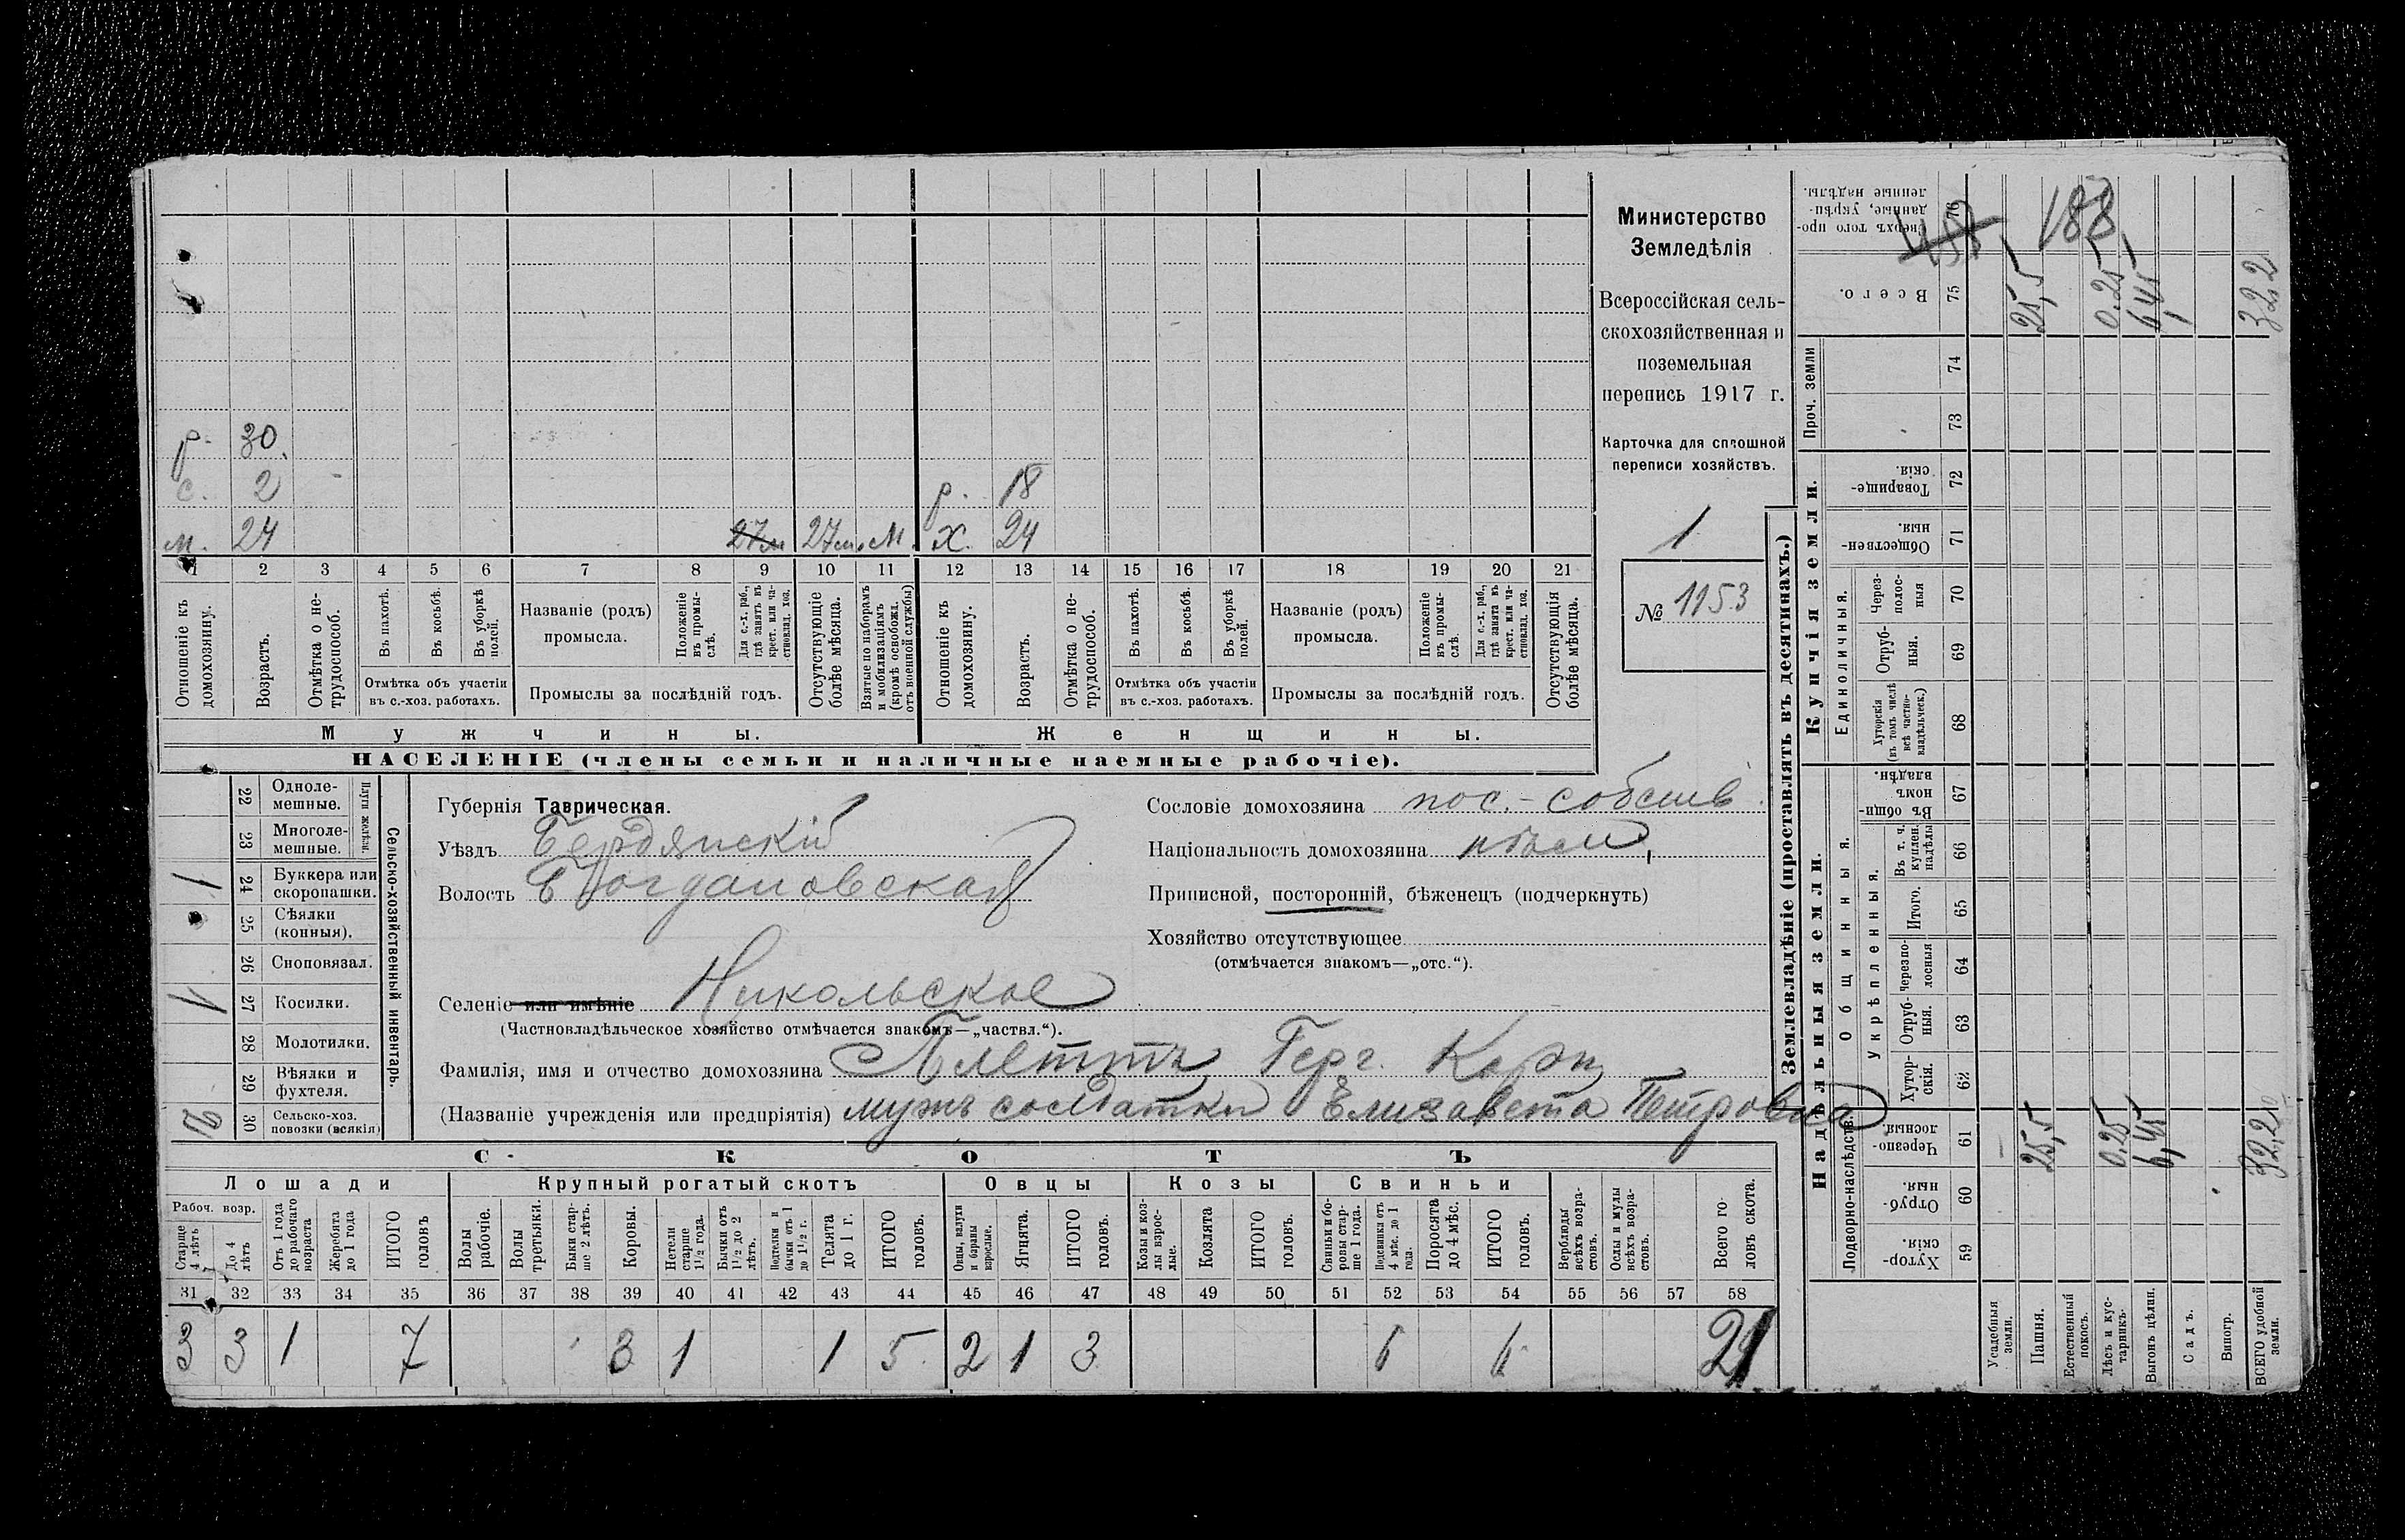 Министерство
Земледѣлія
Всероссійская сель-
скохозяйственная и
поземельная
перепись 1917 г.
Карточка для сплошной
переписи хозяйствъ.
1
№ 1153
р. 30.
с. 2 р. 18
м. 24 27м 27м. М. Х. 24
1 2 3 4 5 6 7 8 9 10 11 12 13 14 15 16 17 18 19 20 21
Отношеніе къ домохозяину.
Возрастъ.
Отмѣтка о не-трудоспособ.
Въ пахотѣ.
Въ косьбѣ.
Въ уборкѣ полей.
Отмѣтка объ участіи
въ с.-хоз. работахъ.
Названіе (родъ)
промысла.
Положеніе въ промы-слѣ.
Для с.-х. раб., гдѣ занятъ въ крест. или ча-стновлад. хоз.
Промыслы за послѣдній годъ.
Отсутствующіе болѣе мѣсяца.
Взятые по наборамъ и мобилизаціямъ (кромѣ освобожд. отъ военной службы)
Отношеніе къ домохозяину.
Возрастъ.
Отмѣтка о не-трудоспособ.
Въ пахотѣ.
Въ косьбѣ.
Въ уборкѣ полей.
Отмѣтка объ участіи
въ с.-хоз. работахъ.
Названіе (родъ)
промысла.
Положеніе въ промы-слѣ.
Для с.-х. раб., гдѣ занята въ крест. или ча-стновлад. хоз.
Промыслы за послѣдній годъ.
Отсутствующія болѣе мѣсяца.
Мужчины. Женщины.
НАСЕЛЕНІЕ (члены семьи и наличные наемные рабочіе).
Сельско-хозяйственный инвентарь.
Плуги желѣзн.
22 Одноле-мешные.
23 Многоле-мешные.
1 24 Буккера или скоропашки.
25 Сѣялки (конныя).
26 Сноповязал.
1 27 Косилки.
28 Молотилки.
29 Вѣялки и фухтеля.
2 30 Сельско-хоз. повозки (всякія)
Губернія Таврическая.
Уѣздъ Бердянскій
Волость Богдановская
Селеніе или имѣніе Никольское
(Частновладѣльческое хозяйство отмѣчается знакомъ—„частвл.“).
Фамилія, имя и отчество домохозяина Плеттъ Герг. Корн
(Названіе учрежденія или предпріятія) мужъ солдатки Елизавета Петровна
Сословіе домохозяина пос.-собств.
Національность домохозяина нѣм.
Приписной, посторонній, бѣженецъ (подчеркнуть)
Хозяйство отсутствующее
(отмѣчается знакомъ—„отс.“).
СКОТЪ
Лошади Крупный рогатый скотъ Овцы Козы Свиньи
Рабоч. возр.
Старше 4 лѣтъ
До 4 лѣтъ
Отъ 1 года до рабочаго возраста
Жеребята до 1 года
ИТОГО головъ
Волы рабочіе.
Волы третьяки.
Быки стар-ше 2 лѣтъ.
Коровы.
Нетели старше 1½ года.
Бычки отъ 1½ до 2 лѣтъ.
Подтелки и бычки отъ 1 до 1½ г.
Телята до 1 г.
ИТОГО головъ.
Овцы, валухи и бараны взрослые.
Ягнята.
ИТОГО головъ.
Козы и коз-лы взрос-лые.
Козлята
ИТОГО головъ.
Свиньи и бо-ровы стар-ше 1 года.
Подсвинки отъ 4 мѣс. до 1 года.
Поросята до 4 мѣс.
ИТОГО головъ.
Верблюды всѣхъ возра-стовъ.
Ослы и мулы всѣхъ возра-стовъ.
Всего го-ловъ скота.
31 32 33 34 35 36 37 38 39 40 41 42 43 44 45 46 47 48 49 50 51 52 53 54 55 56 57 58
3 3 1 7 3 1 1 5 2 1 3 6 6 21
Землевладѣніе (проставлять въ десятинахъ.)
Надѣльныя земли. Купчія земли. Проч. земли
Подворно-наслѣдств. Общинныя. Единоличныя.
Укрѣпленныя.
Хутор-скія. 59
Отруб-ныя. 60
Черезпо-лосныя. 61
Хутор-скія. 62
Отруб-ныя. 63
Черезпо-лосныя 64
Итого. 65
Въ т. ч. куплен. надѣлы 66
Въ общин-номъ владѣн. 67
Хуторскія (въ томъ числѣ всѣ частно-владѣльческ.) 68
Отруб-ныя. 69
Через-полос-ныя 70
Обществен-ныя. 71
Товарище-скія. 72
73
74
Всего. 75
Сверхъ того про-данные, укрѣп-ленные надѣлы. 76
188
Усадебныя земли.
Пашня. 25,5 25,5
Естественный покосъ.
Лѣсъ и кус-тарникъ. 0.25 0.25
Выгонъ цѣлин. 6,45 6,45
Садъ.
Виногр.
ВСЕГО удобной земли. 32,2 32,2